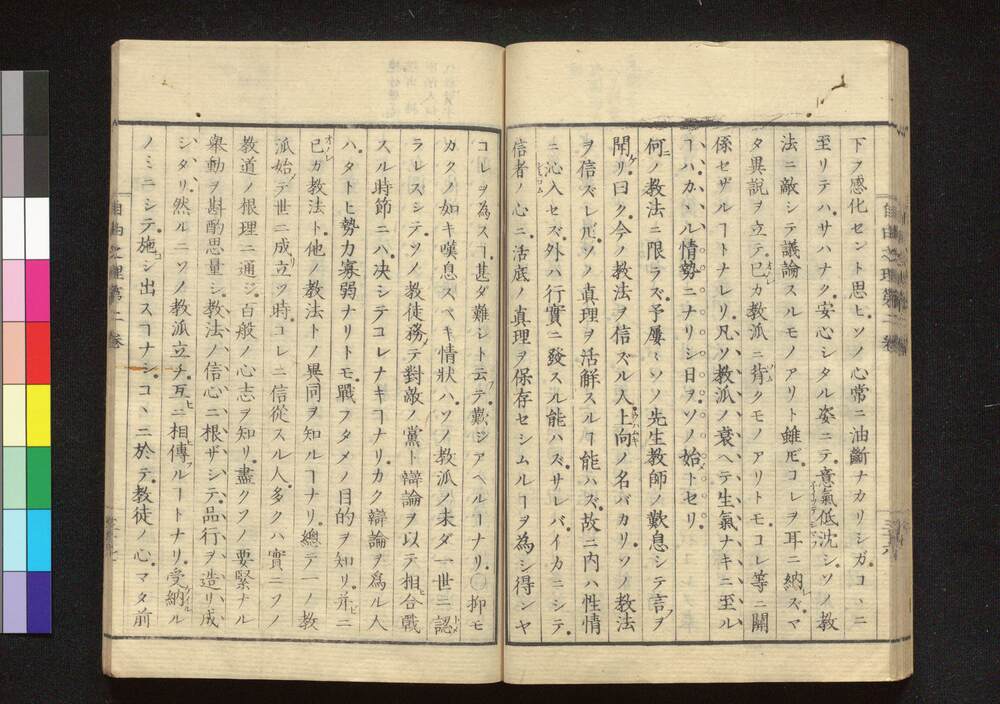 下フ感化セント思ヒ。ソノ心常ニ油斷ナカリシガ。コヽニ
至リテハ。サハナク。安心シタル姿ニテ。意氣低沈シ。ソノ教
法ニ敵シテ議論スルモノアリト雖𪜈。コレヲ耳ニ納レズ。マ
タ異説ヲ立テ。已カ教派ニ背クモノアリトモ。コレ等ニ關
係セザルヿトナレリ。凡ソ教派ノ衰ヘテ生氣ナキニ至ル
ヿハ。カヽル情勢ニナリシ日ヲ。ソノ始トセリ。
何ノ教法ニ限ラズ。予屢〻ソノ先生教師ノ歎息シテ言ヲ
聞リ。曰ク。今ノ教法ヲ信ズル人。上向ノ名バカリ。ソノ教法
ヲ信ズレ𪜈。ソノ眞理ヲ活解スルヿ能ハズ。故ニ内ハ性情
ニ沁入セズ。外ハ行實ニ發スル能ハズ。サレバ。イカニシテ。
信者ノ心ニ。活底ノ眞理ヲ保存セシムルヿヲ為シ得ンヤ
コレヲ為スヿ。甚ダ難シト云テ。歎ジアヘルヿナリ。〇抑モ
カクノ如キ嘆息スベキ情狀ハ。ソノ教派ノ未ダ一世ニ認
ラレズシテ。ソノ教徒務テ。對敵ノ黨ト辯論ヲ以テ相合戰
スル時節ニハ。决シテコレナキヿナリ。カク辯論ヲ為ル人
ハ。タトヒ勢力寡弱ナリトモ。戰フタメノ目的ヲ知リ。并ニ
已カ教法ト。他ノ教法トノ異同ヲ知ルヿナリ。總テ一ノ教
派始テ世ニ成立ツ時。コレニ信從スル人。多クハ實ニソノ
教道ノ根理ニ通ジ。百般ノ心志ヲ知リ。盡クソノ要緊ナル
舉動ヲ斟酌思量シ。教法ノ信心ニ根ザシテ。品行ヲ造リ成
シタリ。然ルニソノ教派立チ。互ニ相傳ルヿトナリ。受納ル
ノミニシテ。施シ出スヿナシ。コヽニ於テ。教徒ノ心。マタ前
自由之理第二卷
自由之理第二卷